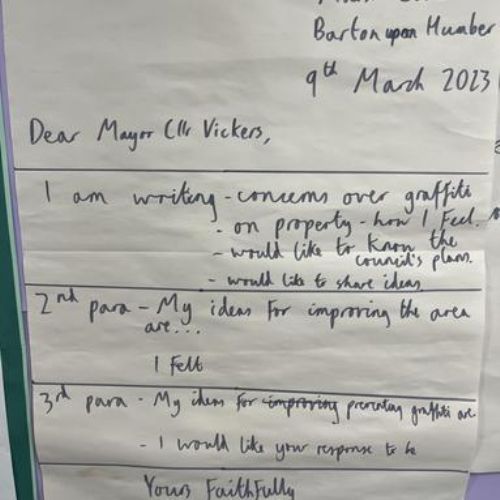 Barton upon Humber
9th March 2023
Dear Mayor Cllr Vickers,
I am writing - concerns over graffiti
- on property - how I feel.
- would like to know the
council's plans.
- would like to share ideas
2nd para - My ideas for improving the area
are...
I felt
3rd para - My ideas for improving preventing graffiti are
- I would like your response to be
Yours Faithfully